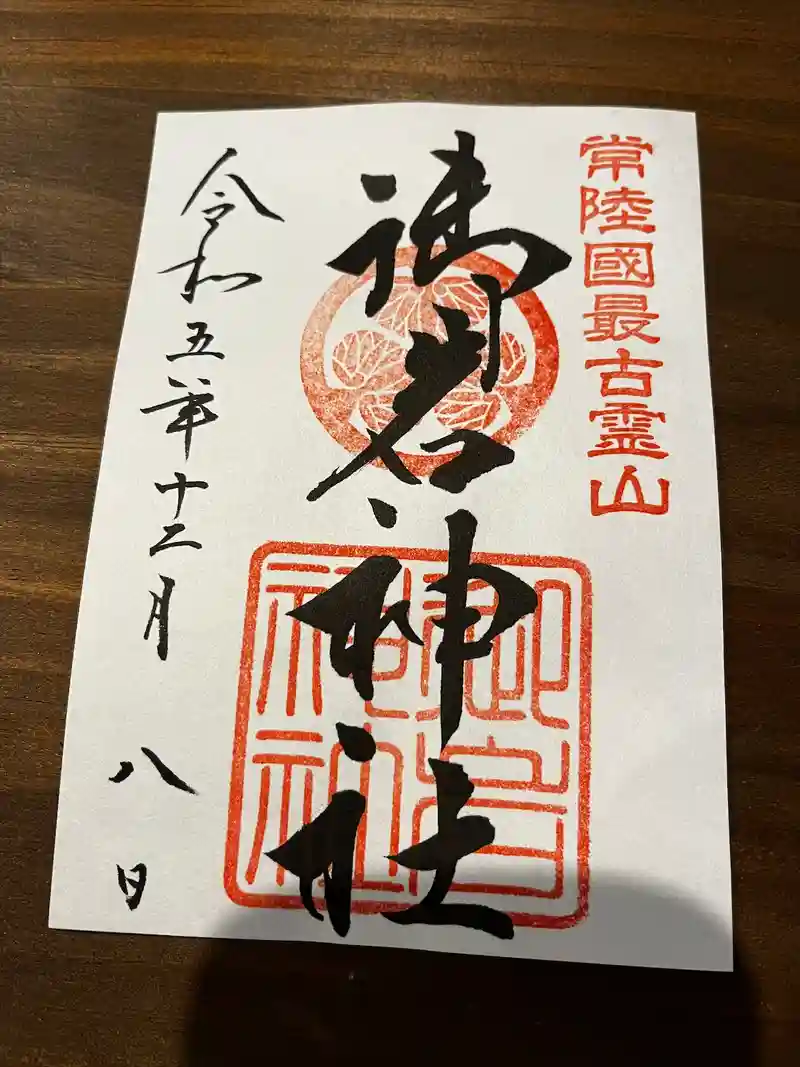 常陸國最古霊山
御岩神社
御岩神社
令和五年十二月八日